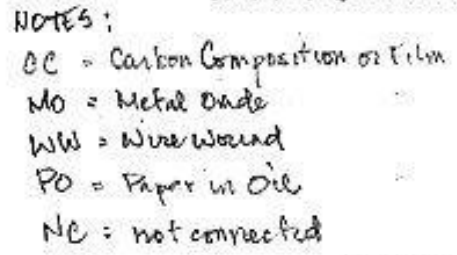 NOTES:
CC = Carbon Composition or Film
MO = Metal Oxide
WW = Wire Wound
PO = Paper in Oil
NC = not connected